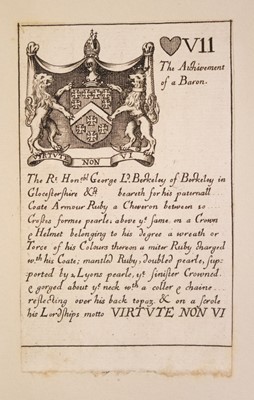 VII
The Atchivement
of a Baron.
VIRTVTE NON VI
The Rt. Honble. George Ld. Berkeley of Berkeley in
Glocestershire &ct. beareth for his paternall
Coate Armour Ruby a Cheveron between 10
Crosses formee pearle, above ye. same on a Crown
& Helmet belonging to his degree a wreath or
Torce of his Colours thereon a miter Ruby Charged
wth. his Coate; mantled Ruby, doubled pearle, sup:
ported by 2 Lyons pearle, ye. sinister Crowned
& gorged about ye. neck wth. a coller & chaine
reflecting over his back topaz. & on a scrole
his Lordships motto VIRTVTE NON VI